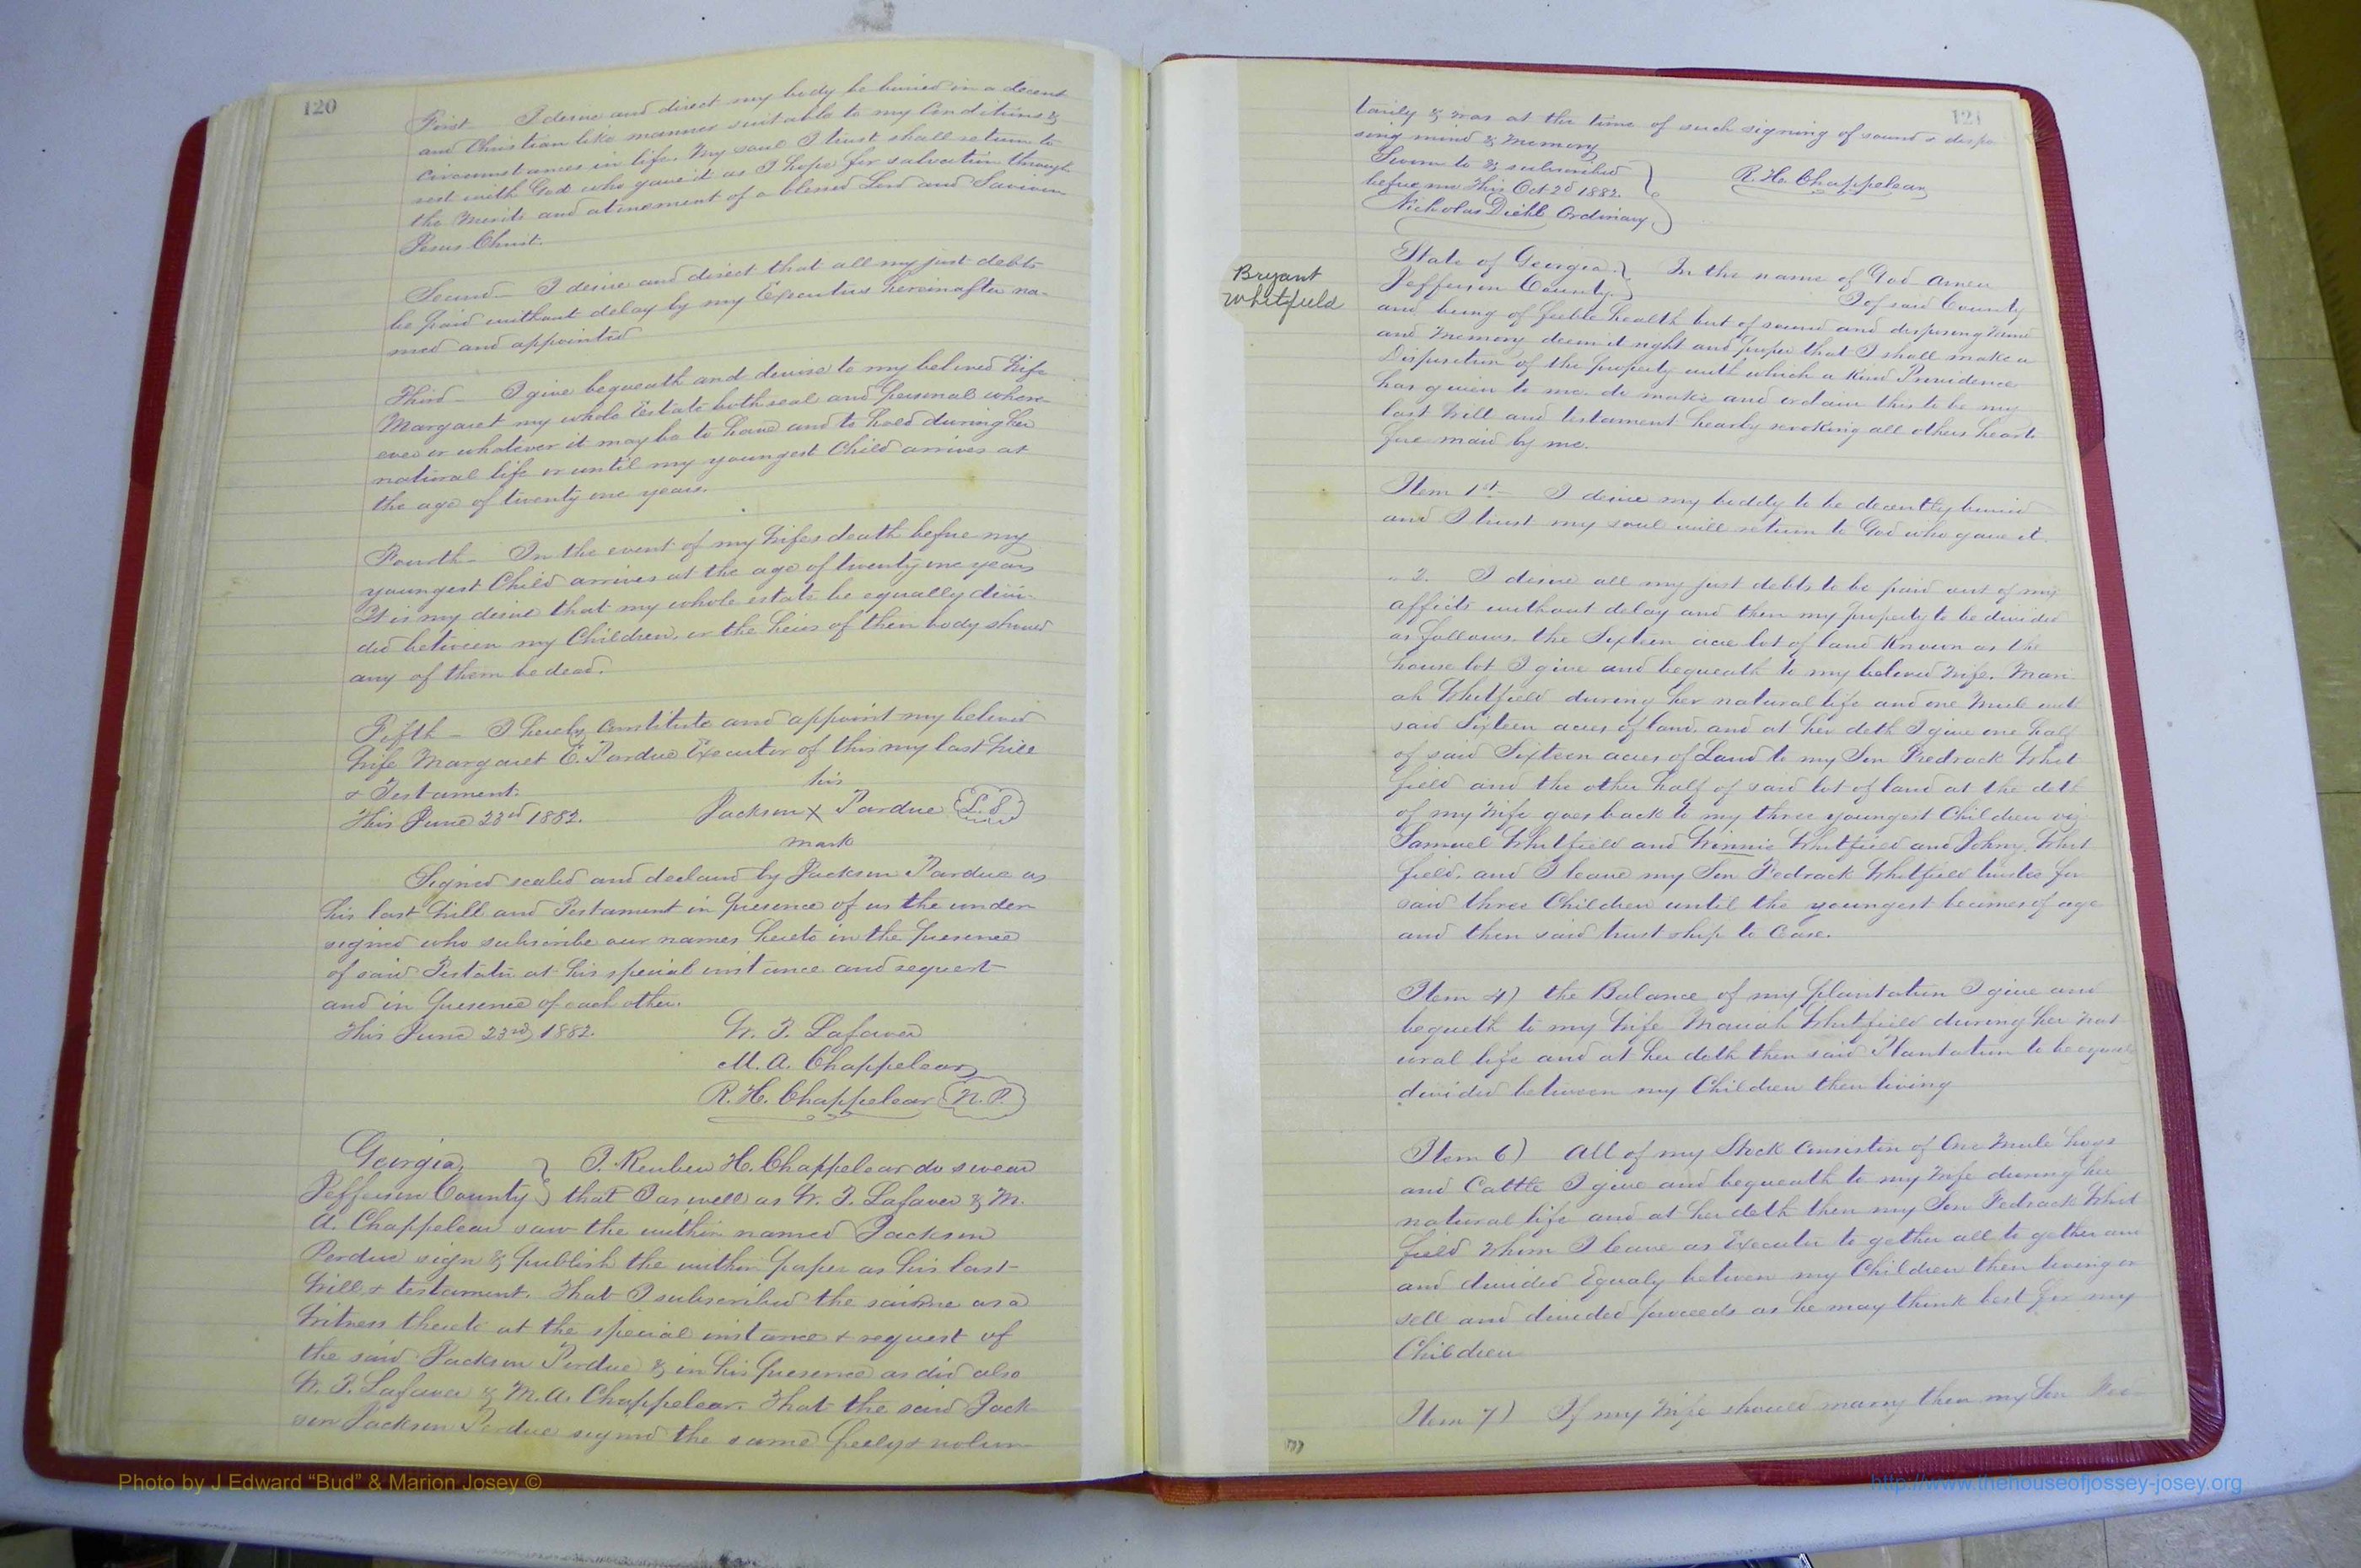 120
First — I desire and direct my body be buried in a decent
and Christian like manner suitable to my Conditions &
circumstances in life. My soul I trust shall return to
rest with God who gave it as I hope for salvation through
the Merits and atonement of a blessed Lord and Saviour
Jesus Christ.
Second — I desire and direct that all my just debts
be paid without delay by my Executors hereinafter na-
med and appointed
Third — I give bequeath and devise to my beloved Wife
Margaret my whole Estate both real and personal where-
ever or whatever it may be to have and to hold during her
natural life or until my youngest Child arrives at
the age of twenty one years.
Fourth — In the event of my Wifes death before my
youngest Child arrives at the age of twenty one years
It is my desire that my whole estate be equally divi-
ded between my Children, or the heirs of their body should
any of them be dead.
Fifth — I hereby Constitute and appoint my beloved
Wife Margaret E. Pardue Executor of this my last Will
& Testament.
This June 23rd 1882.
his
Jackson X Pardue L.S
mark
Signed sealed and declared by Jackson Pardue as
his last Will and Testament in presence of us the under
signed who subscribe our names hereto in the presence
of said Testator at his special instance and request
and in presence of each other.
This June 23rd 1882
W. T. Lafaver
M. A. Chappelear
R. H. Chappelear N. P.
Georgia, } I. Reuben H. Chappelear do swear
Jefferson County } that I as well as W. T. Lafaver & M.
A. Chappelear saw the within named Jackson
Perdue sign & publish the within paper as his last
Will & testament. That I subscribed the same as a
Witness thereto at the special instance & request of
the said Jackson Perdue & in his presence as did also
W. T. Lafaver & M. A. Chappelear. That the said Jack
son Jackson Perdue signed the same freely & volun
121
tarily & was at the time of such signing of sound & dispo
sing mind & memory
Sworn to & subscribed
before me this Oct 2d 1882.
R. H. Chappelear
Nicholas Diehl Ordinary
Bryant
Whitfield
State of Georgia } In the name of God Amen
Jefferson County } I of said County
and being of feeble health but of sound and disposing Mind
and Memory deem it right and proper that I shall make a
Disposition of the property with which a Kind Providence
has given to me. do make and ordain this to be my
last Will and testament hearby revoking all others hearto
fore maid by me.
Item 1st — I desire my boddy to be decently buried
and I trust my soul will return to God who gave it.
" 2. I desire all my just debts to be paid out of my
affects without delay and then my property to be divided
as follows. the Sixteen acre lot of land Known as the
house lot I give and bequeath to my beloved Wife. Mari
ah Whitfield during her natural life and one Mule with
said Sixteen acres of land. and at her deth I give one half
of said Sixteen acres of Land to my Son Fedrack Whit
field and the other half of said lot of land at the deth
of my Wife goes back to my three youngest Children viz
Samuel Whitfield and Winnie Whitfield and Johny Whit
field. and I leave my Son Fedrack Whitfield trustee for
said three Children until the youngest becomes of age
and then said trust ship to Ceace.
Item 4) the Balance of my plantation I give and
bequeth to my Wife Mariah Whitfield during her nat
ural life and at her deth then said Plantation to be equaly
divided between my Children then living
Item 6) All of my Stock Consistin of One Mule hogs
and Cattle I give and bequeath to my Wife during her
natural life and at her deth then my Son Fedrack Whit
field Whom I leave as Executor to gether all to gether and
and divided Equaly between my Children then living or
sell and divided proceeds as he may think best for my
Children
Item 7) If my Wife should marry then my Son Fed
Photo by J Edward “Bud” & Marion Josey ©
http://www.thehouseofjossey-josey.org